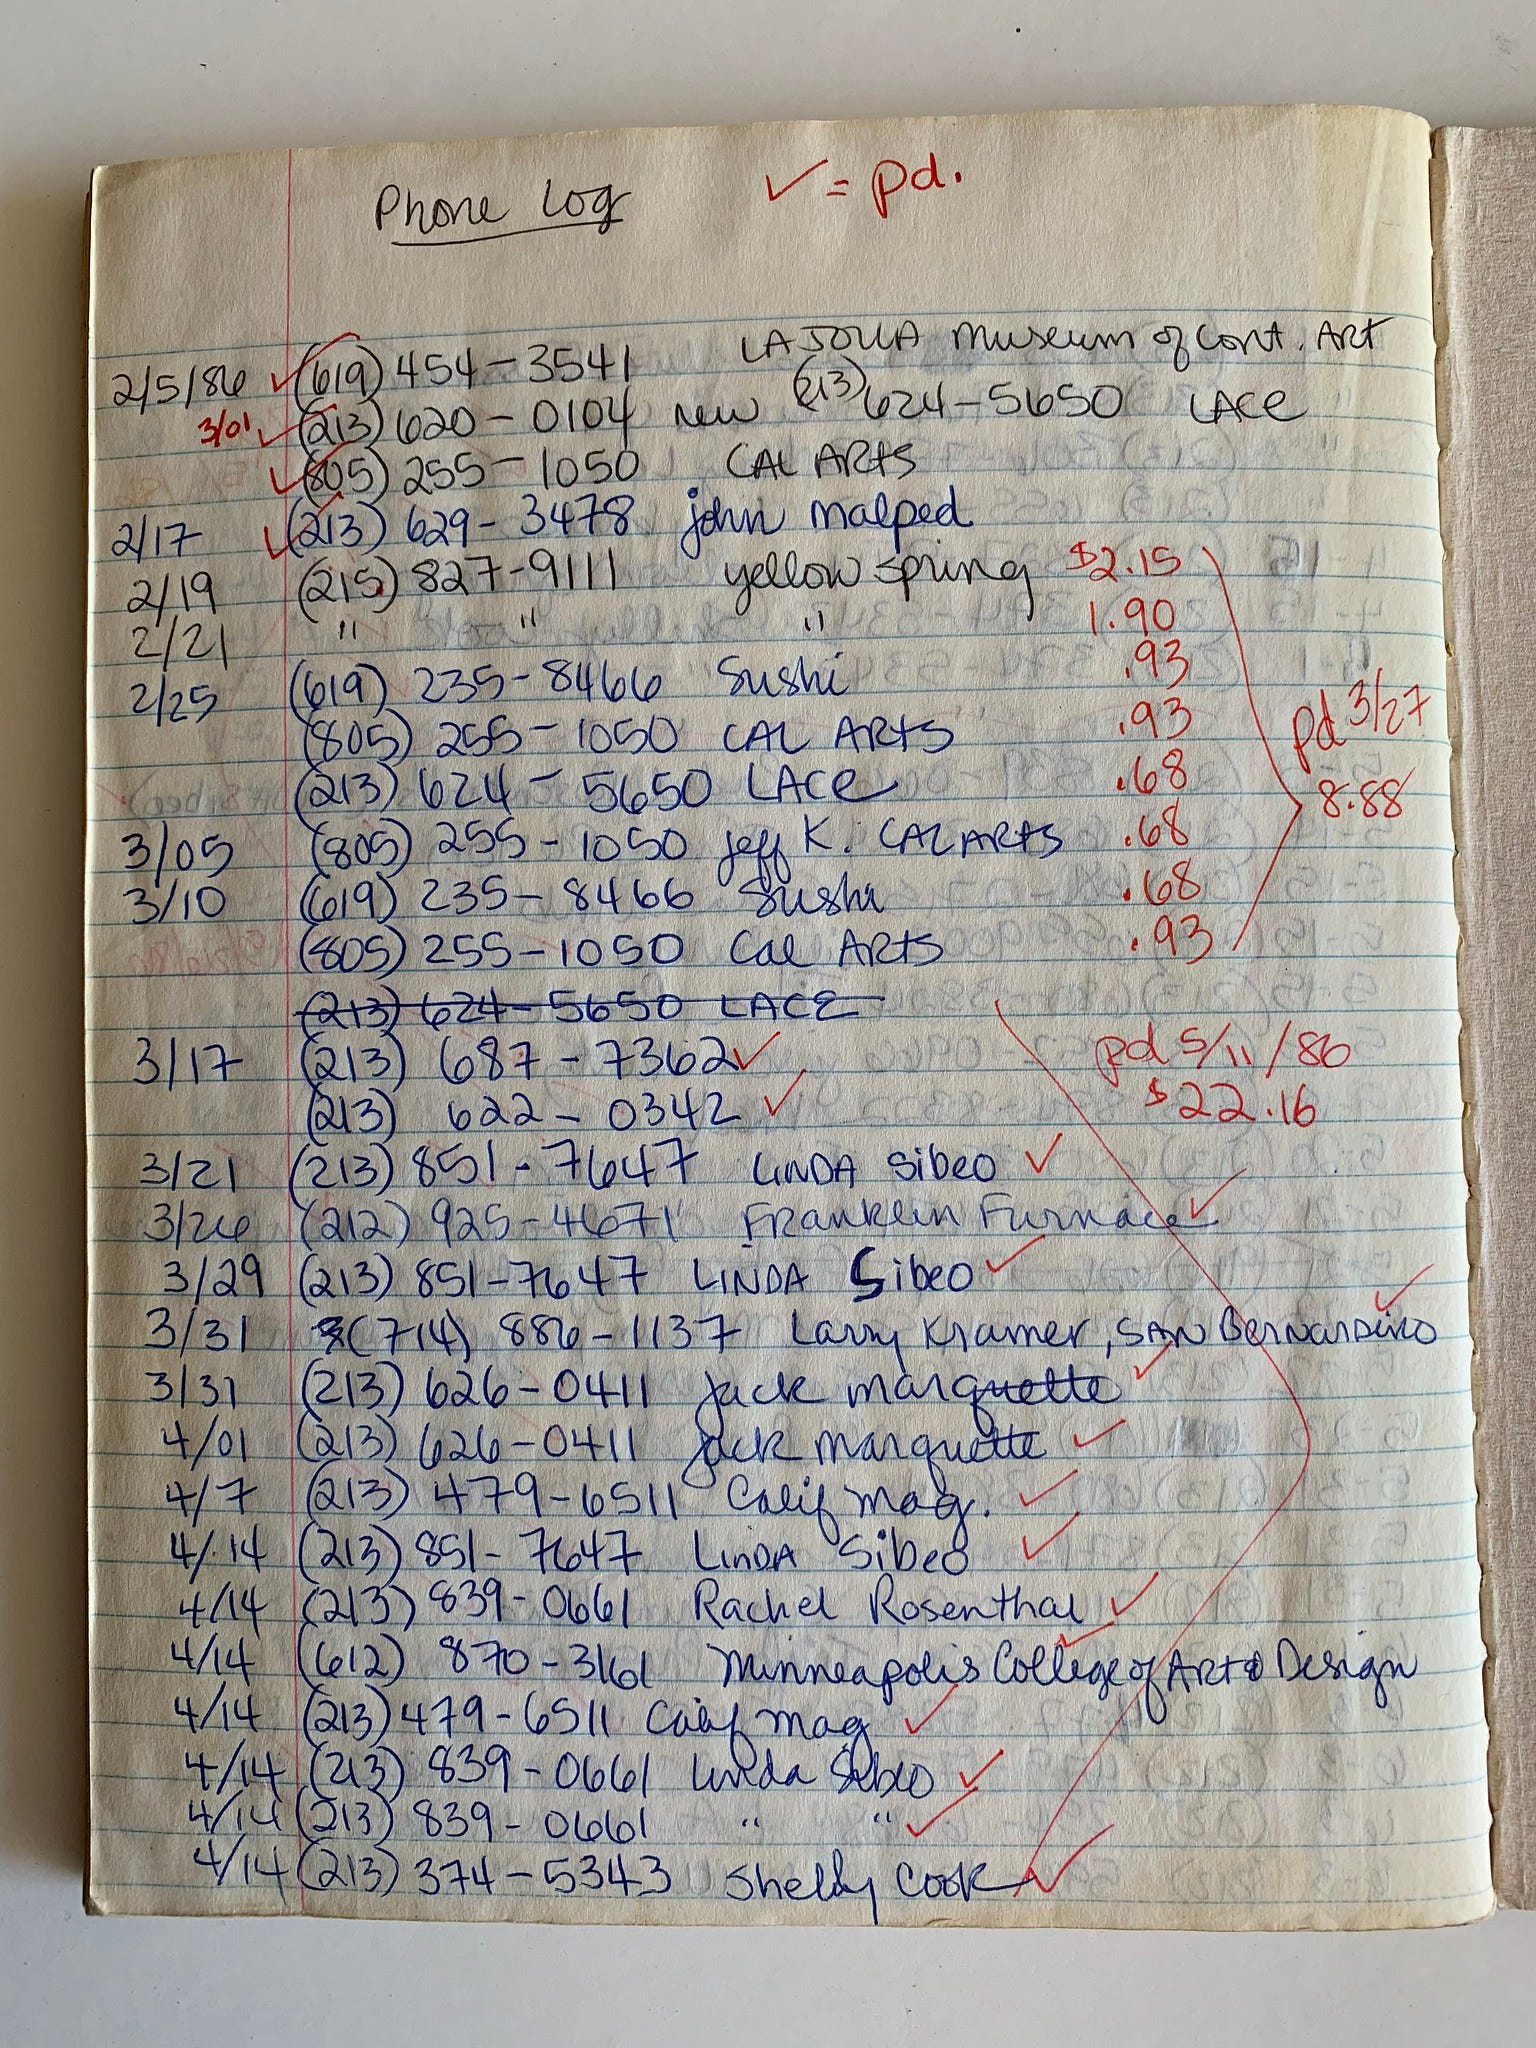 Phone Log ✓ = pd.
2/5/86 ✓ (619) 454-3541 LA JOLLA Museum of Cont. Art
3/01 ✓ (213) 620-0104 new (213) 624-5650 LACE
✓ (805) 255-1050 CAL ARTS
2/17 ✓ (213) 629-3478 john malped
2/19 (215) 827-9111 yellow spring $2.15
2/21 " " " 1.90
2/25 (619) 235-8466 Sushi .93
(805) 255-1050 CAL ARTS .93
pd 3/27
(213) 624-5650 LACE .68
8.88
3/05 (805) 255-1050 Jeff K. CAL ARTS .68
3/10 (619) 235-8466 Sushi .68
(805) 255-1050 Cal ARTS .93
(213) 624-5650 LACE
3/17 (213) 687-7362 ✓ pd 5/11/86
(213) 622-0342 ✓ $22.16
3/21 (213) 851-7647 LINDA Sibeo ✓
3/26 (212) 925-4671 Franklin Furnace ✓
3/29 (213) 851-7647 LINDA Sibeo ✓
3/31 (714) 886-1137 Larry Kramer, SAN Bernardino ✓
3/31 (213) 626-0411 Jack marquette ✓
4/01 (213) 626-0411 Jack marquette ✓
4/7 (213) 479-6511 Calif mag. ✓
4/14 (213) 851-7647 LINDA Sibeo ✓
4/14 (213) 839-0661 Rachel Rosenthal ✓
4/14 (612) 870-3161 Minneapolis College of Art & Design ✓
4/14 (213) 479-6511 Calif mag ✓
4/14 (213) 839-0661 Linda Sibeo ✓
4/14 (213) 839-0661 " " ✓
4/14 (213) 374-5343 Shelby Cook ✓